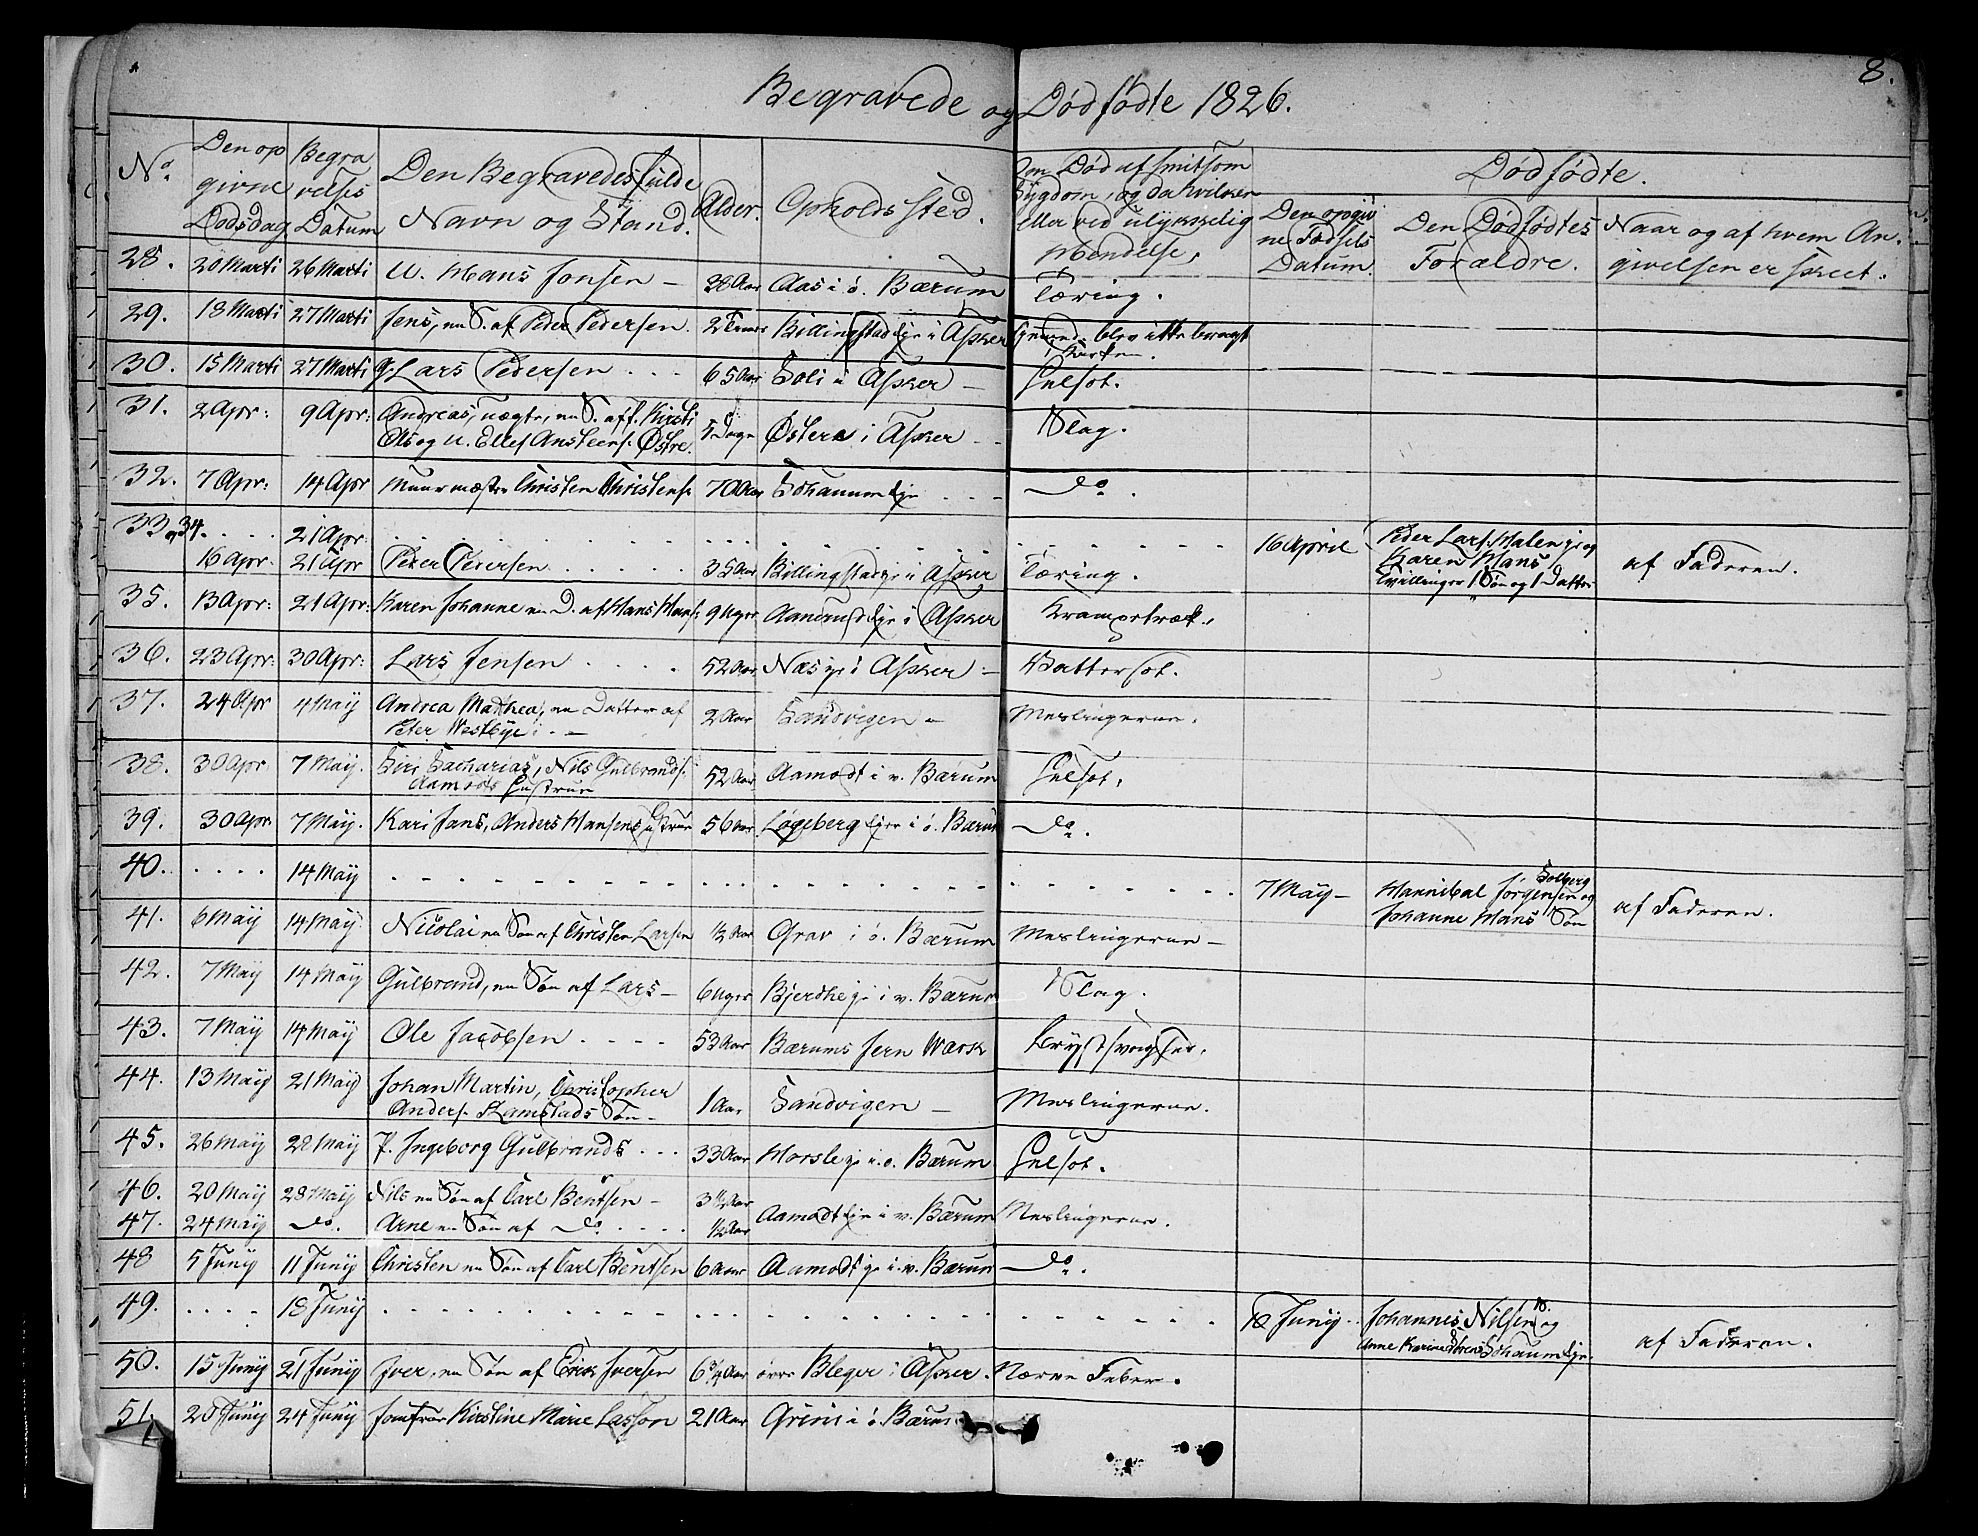 8.
Begravede og Dødfødte 1826.
No. | Den opgivne Dødsdag | Begravelses Datum | Den Begravedes fulde Navn og Stand. | Alder. | Opholdssted. | Om Død af smitsom Sygdom, og da hvilken eller ved ulykkelig Hendelse, | Dødfødte.
Den opgivne Fødsels Datum. | Den Dødfødtes Forældre. | Naar og af hvem Angivelsen er skeet.
28. | 20 Marti | 26 Marti | U. Hans Jonsen – | 38 Aar | Aas i ö. Bærum | Tæring.
29. | 18 Marti | 27 Marti | Jens, en S. af Peder Pedersen. | Billingstadeje i Asker | blev ikke bragt i Kirken.
30. | 15 Marti | 27 Marti | G. Lars Pedersen . . . | 65 Aar | Soli i Asker – | Gulsot.
31. | 2 Apr: | 9 Apr: | Andreas, uægte, en S. af f. Kirsti
Ols og U. Ellef Ansteens. Østre. | 5 Dage | Østern i Asker – | Slag.
32. | 7 Apr: | 14 Apr | Muurmæster Christen Christens: | 70 Aar | . . . | Do.
33, 34. | . . . | 21 Apr: | . . . | 16 April | Peder Lars. Halen eje og
Karen Hans
Tvillinger 1 Søn og 1 Datter | af Faderen.
16 Apr: | 21 Apr | Peder Pedersen . . . . . | 35 Aar | Billingstadeje i Asker | Tæring.
35. | 13 Apr: | 21 Apr: | Karen Johanne en D. af Hans Hans: | 9 Uger | i Asker | Krampetræk.
36. | 23 Apr: | 30 Apr: | Lars Jensen . . . . | 52 Aar | Næs eje i Asker – | Vattersot.
37. | 24 Apr | 4 Maÿ | Andrea Mathea, en Datter af
Peter Westbÿe | 2 Aar | Sandvigen – | Meslingerne.
38. | 30 Apr | 7 Maÿ. | Siri Sacharias, Nils Gulbrands:
Aamodts Hustrue | 52 Aar | Aamodt i v. Bærum | Gulsot.
39. | 30 Apr | 7 Maÿ. | Kari Jans, Anders Hansens Hustrue | 56 Aar | Løgeberg ejer i ö. Bærum | Do.
40. | . . . . | 14 Maÿ | . . . | 7 Maÿ – | Hannibal Jörgensen Solberg og
Johanne Hans Søn | af Faderen.
41. | 6 Maÿ | 14 Maÿ | Nicolai en Søn af Christen Larsen | 1½ Aar | Grav i ö. Bærum | Meslingerne –
42. | 7 Maÿ | 14 Maÿ | Gulbrand, en Søn af Lars – | 6 Uger | Bjerche eje i v. Bærum | Slag.
43. | 7 Maÿ | 14 Maÿ | Ole Jacobsen . . . . | 53 Aar | Bærums Jern Værk | Brystsvaghed.
44. | 13 Maÿ | 21 Maÿ | Johan Martin, Christopher
Anders: Ramstads Søn – | 1 Aar | Sandvigen – | Meslingerne.
45. | 26 Maÿ | 28 Maÿ | P. Ingeborg Gulbrands . . . | 33 Aar | Horsle eje i ö. Bærum | Gulsot.
46. | 20 Maÿ | 28 Maÿ | Nils en Søn af Carl Bentsen – | 3½ Aar | Aamodt eje i v. Bærum | Meslingerne.
47. | 24 Maÿ | Do. | Arne en Søn af Do. . . . | ½ Aar
48 | 5 Junÿ | 11 Junÿ | Christen en Søn af Carl Bentsen | 6 Aar | Aamodt eje i v. Bærum | Do.
49. | . . . . | 18 Junÿ | . . . | Junÿ | Johannes Nilsen og
Anne Karine | af Faderen.
50. | 15 Junÿ | 21 Junÿ | Iver, en Søn af Erik Iversen | 6¾ Aar | övre Bleger i Asker. | Nerve Feber.
51. | 20 Junÿ | 24 Junÿ | Jomfrue Kirstine Marie Lasson | 21 Aar | Grini i ö. Bærum